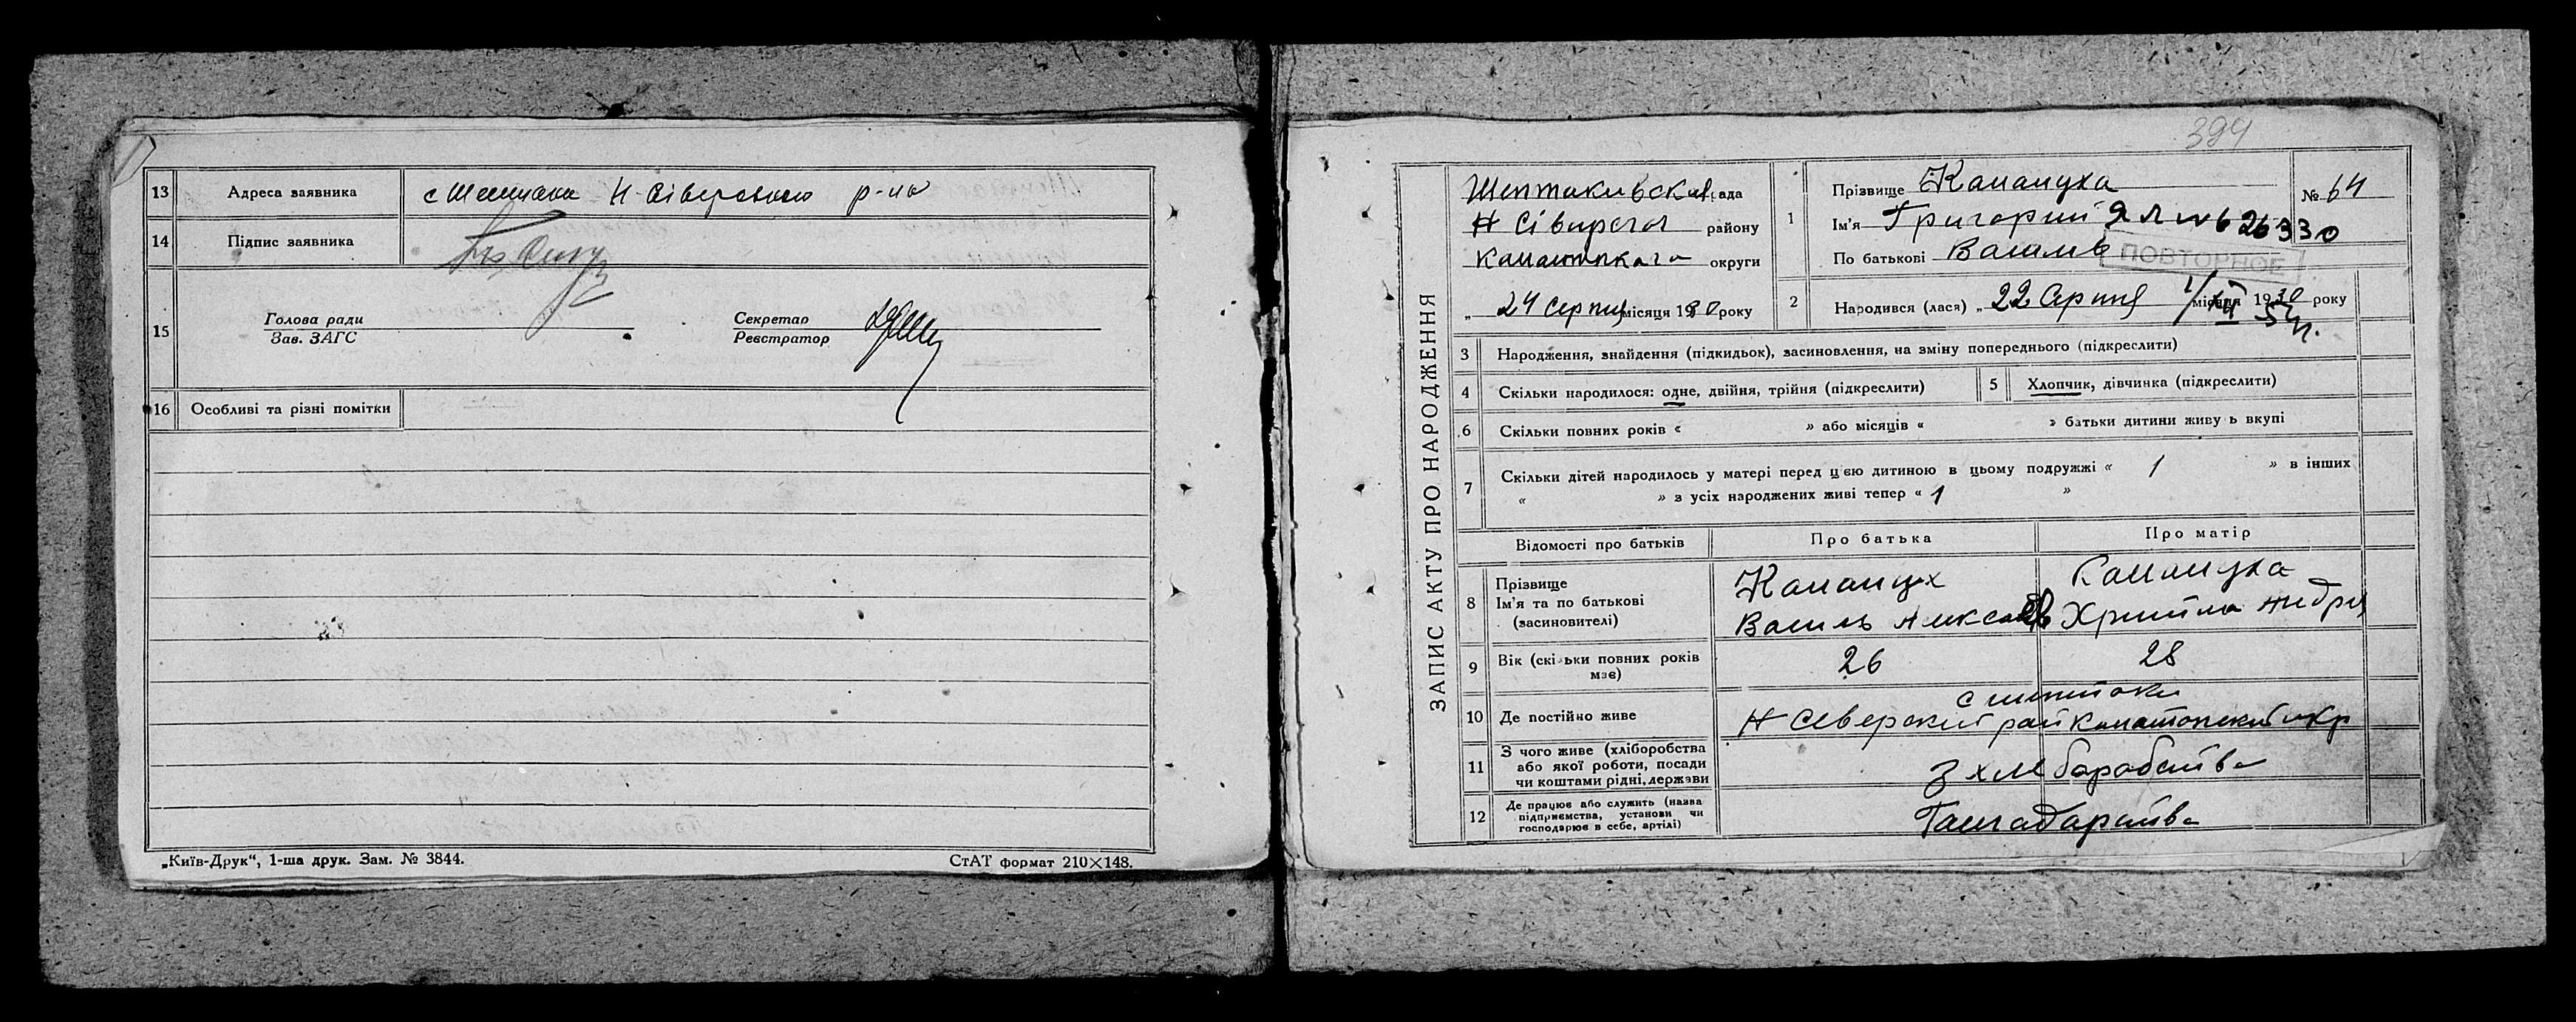 13 Адреса заявника с Шептаки Н-Сіверського р-но
14 Підпис заявника
15 Голова ради Зав. ЗАГС Секретар Реєстратор
16 Особливі та різні помітки
„Київ-Друк“, 1-ша друк. Зам. № 3844. СтАТ формат 210×148.
394
ЗАПИС АКТУ ПРО НАРОДЖЕННЯ
Шептаківська рада
Н Сіверског району
Канатопкаго округи
„ 24 Серпня місяця 1930 року
1 Прізвище Капацуха № 64
Ім'я Григорий ЯЛ № 626330
По батькові Василів
ПОВТОРНОЕ
2 Народився (лася) „ 22 Серпня місяця 1930 року
1/XII 54 г.
3 Народження, знайдення (підкидьок), засиновлення, на зміну попереднього (підкреслити)
4 Скільки народилося: одне, двійня, трійня (підкреслити)
5 Хлопчик, дівчинка (підкреслити)
6 Скільки повних років « » або місяців « » батьки дитини живуть вкупі
7 Скільки дітей народилось у матері перед цією дитиною в цьому подружжі « 1 » в інших
« » з усіх народжених живі тепер « 1 »
Відомості про батьків Про батька Про матір
8 Прізвище
Ім'я та по батькові
(засновителі)
Василь Алексеев
9 Вік (скільки повних років має) 26 28
10 Де постійно живе
с шептаки
Н Сіверский рай Канатопский окр
11 З чого живе (хліборобства
або якої роботи, посади
чи коштами рідні, держави
З хлеборобства
12 Де працює або служить (назва
підприємства, установи чи
господарює в себе, артілі)